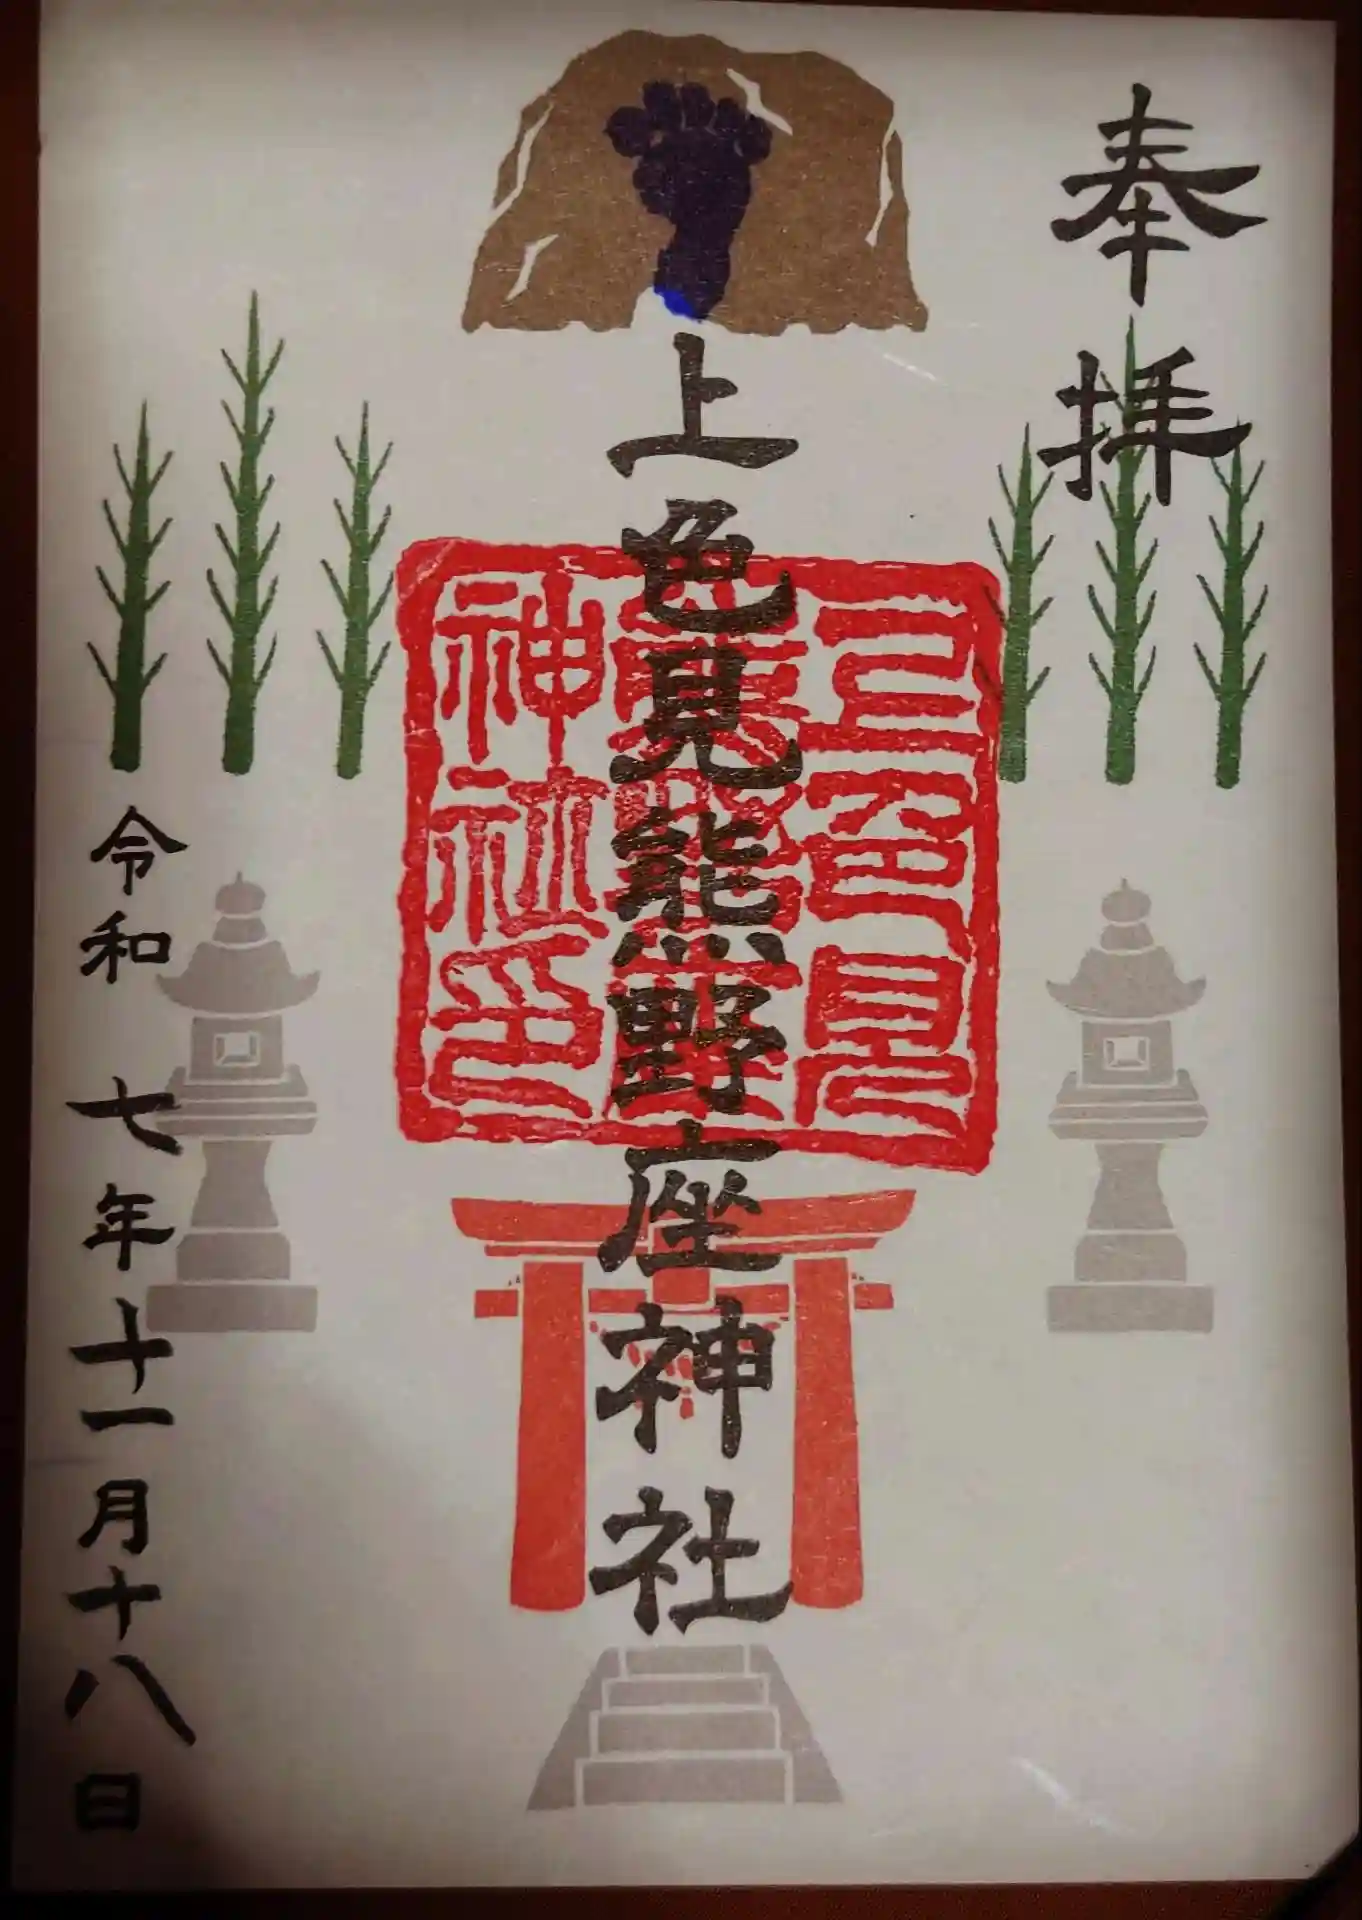 奉拝
上色見熊野座神社
上色見
熊野座
神社印
令和 七年十一月十八日